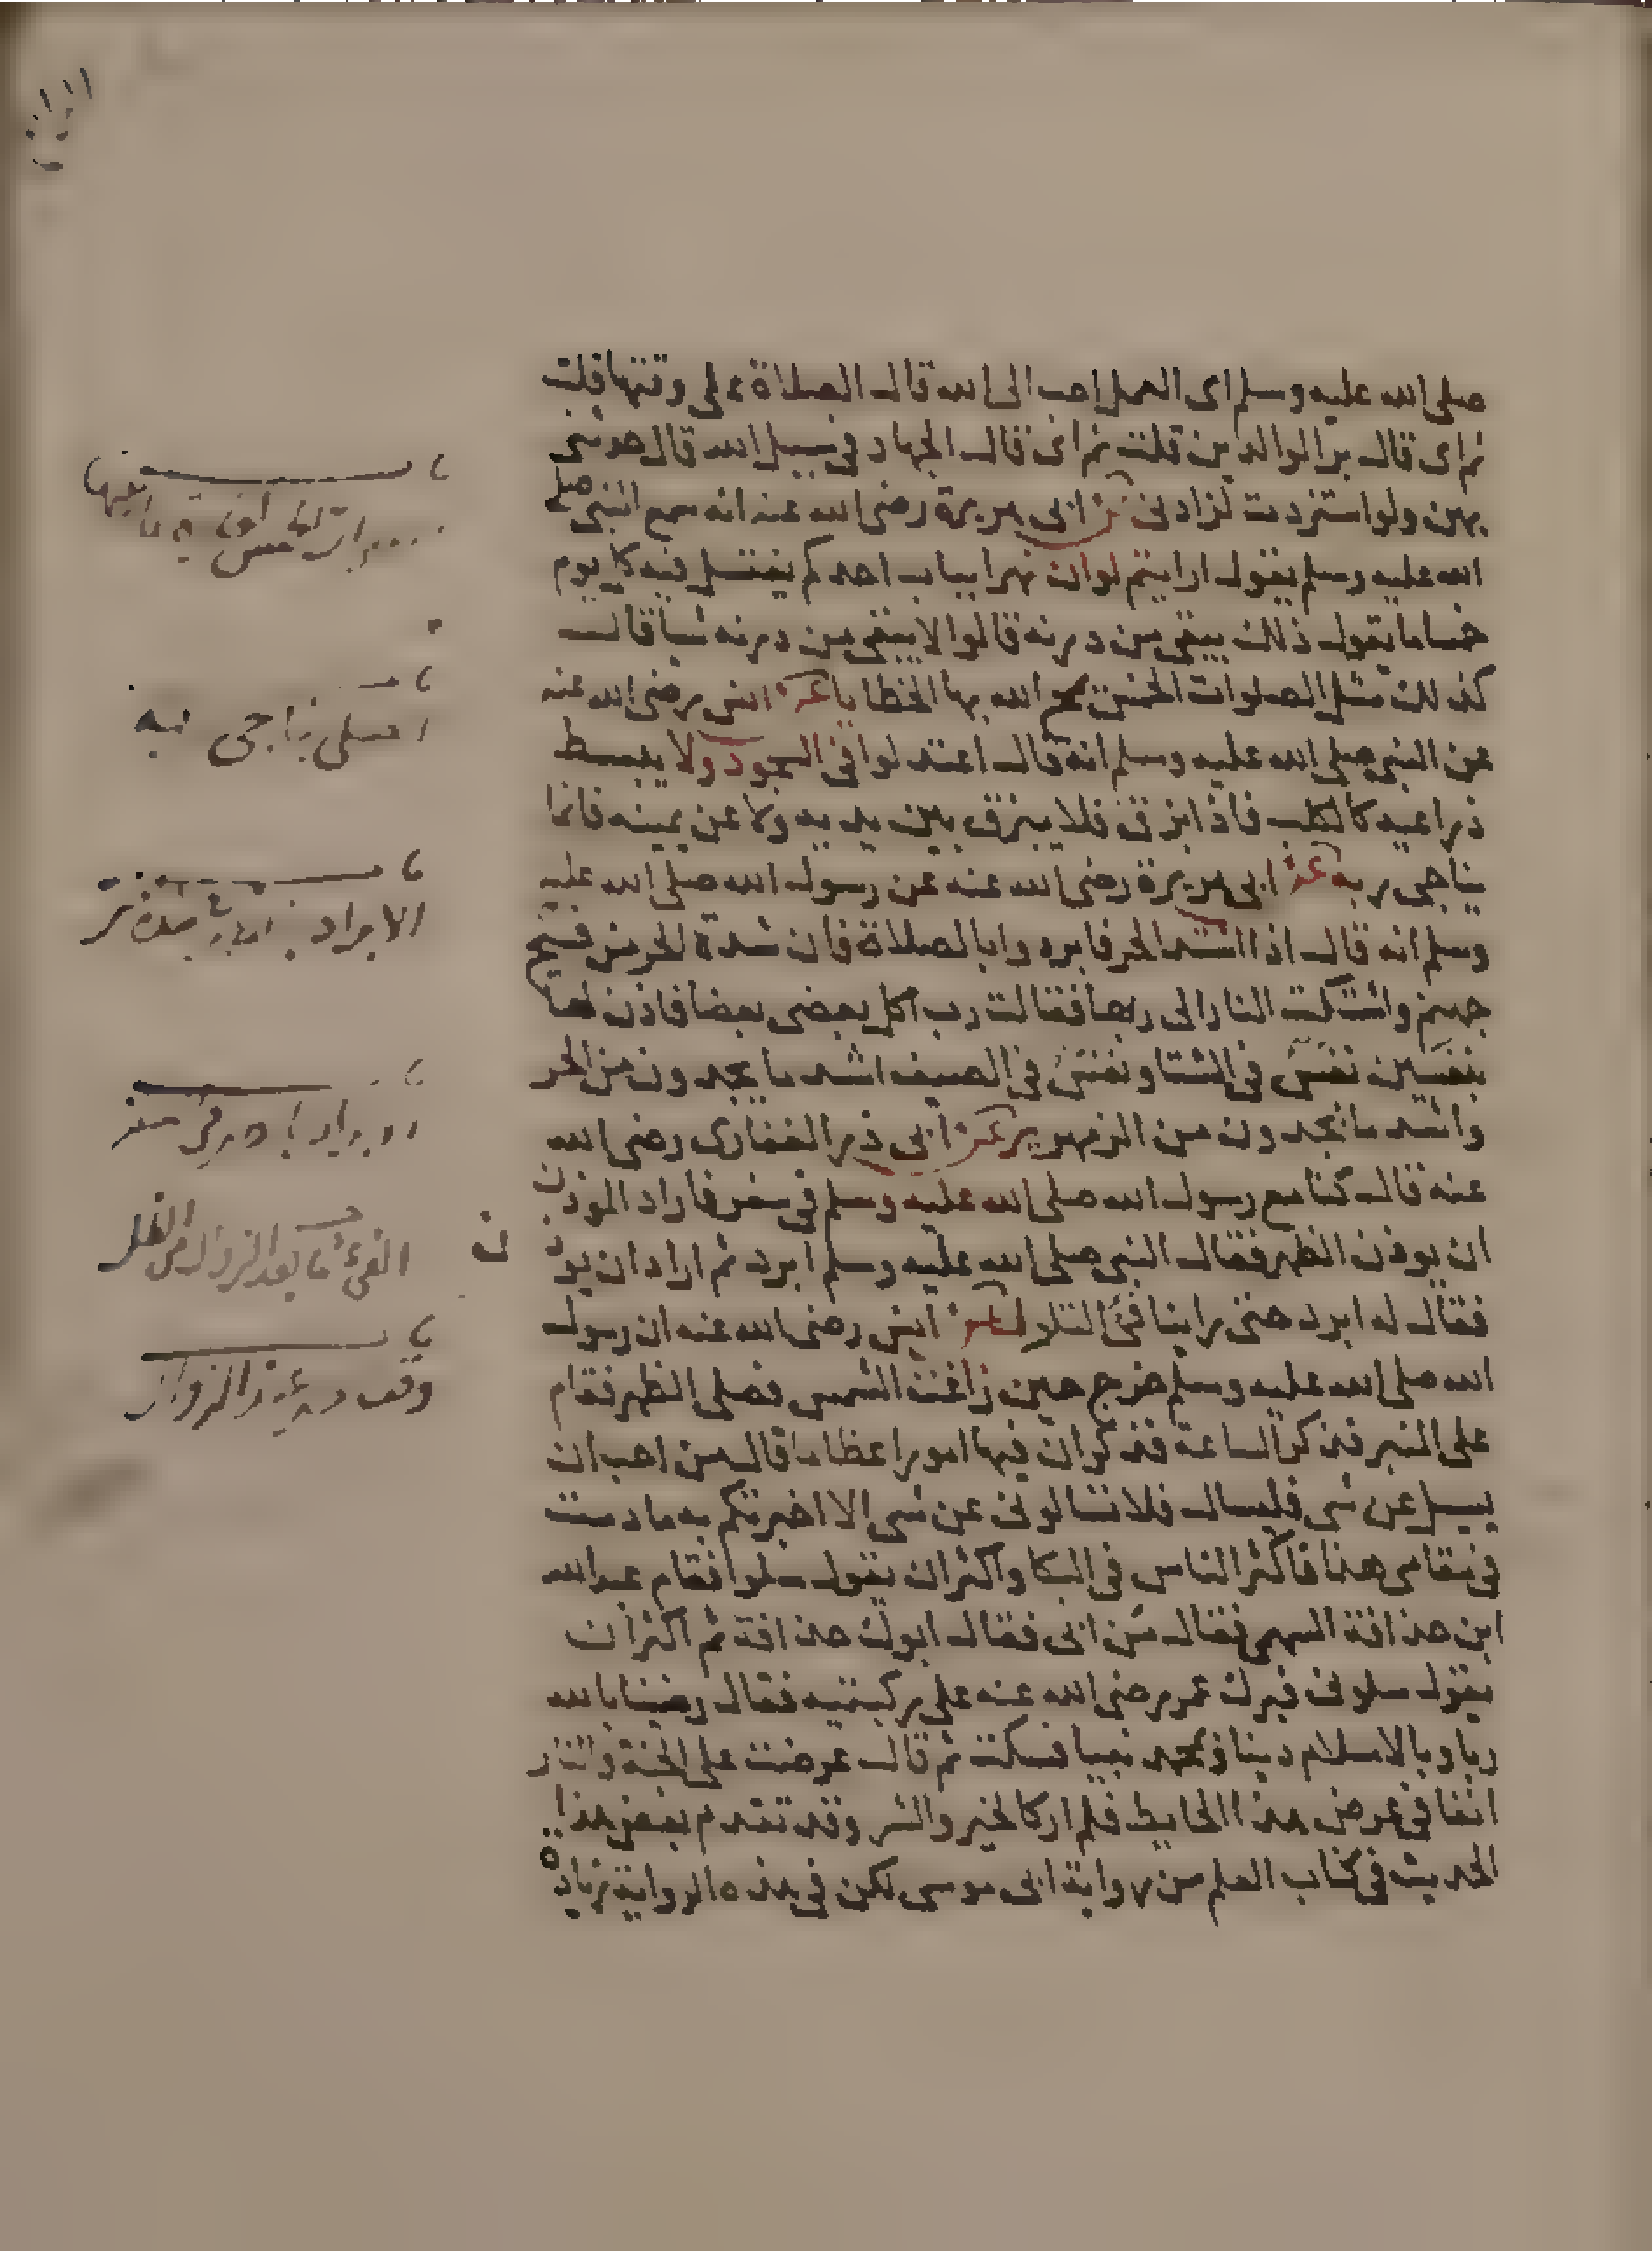 صلى الله عليه وسلم اى العمل احب الى الله قال الصلاة على وقتها قلت
ثم اى قال بر الوالدين قلت ثم اى قال الجهاد في سبيل الله قال حدثني
بهن ولو استزدت لزادني عن ابي هريرة رضى الله عنه انه سمع النبي صلى
الله عليه وسلم يقول ارايتم لو ان نهرا بباب احدكم يغتسل فيه كل يوم
خمسا ما يقول ذلك يبقى من درنه قالوا لا يبقى من درنه شيا قال
كذلك مثل الصلوات الخمس يمحو الله بها الخطايا عن انس رضى الله عنه
عن النبي صلى الله عليه وسلم انه قال اعتدلوا في السجود ولا يبسط
ذراعيه كالكلب فاذا بزق فلا يبزق بين يديه ولا عن يمينه فانما
يناجى ربه عن ابي هريرة رضى الله عنه عن رسول الله صلى الله عليه
وسلم انه قال اذا اشتد الحر فابردوا بالصلاة فان شدة الحر من فيح
جهنم واشتكت النار الى ربها فقالت رب اكل بعضى بعضا فاذن لها
بنفسين نفس في الشتا ونفس في الصيف اشد ما تجدون من الحر
واشد ما تجدون من الزمهرير عن ابي ذر الغفارى رضى الله
عنه قال كنا مع رسول الله صلى الله عليه وسلم في سفر فاراد الموذن
ان يوذن الظهر فقال النبي صلى الله عليه وسلم ابرد ثم اراد ان يوذن
فقال له ابرد حتى راينا فئ التلول عن انس رضى الله عنه ان رسول
الله صلى الله عليه وسلم خرج حين زاغت الشمس فصلى الظهر فقام
على المنبر فذكر الساعة فذكر ان فيها امورا عظاما قال من احب ان
يسيل عن شى فليسال فلا تسالونى عن شى الا اخبرتكم به ما دمت
في مقامى هذا فاكثر الناس في البكا واكثر ان يقول سلوا فقام عبد الله
ابن حذافة السهمى فقال من ابى فقال ابوك حذافة ثم اكثر ان
يقول سلونى فبرك عمر رضى الله عنه على ركبتيه فقال رضينا بالله
ربا وبالاسلام دينا وبمحمد نبيا فسكت ثم قال عرضت على الجنة والنار
انفا في عرض هذا الحايط فلم ار كالخير والشر وقد تقدم بعض هذا
الحديث في كتاب العلم من رواية ابى موسى لكن في هذه الرواية زيادة
المصلى يناجى ربه
الابراد بالظهر في شدة الحر
الابراد بالظهر في السفر
الفئ ما بعد الزوال من الظل
ن
وقت الظهر عند الزوال